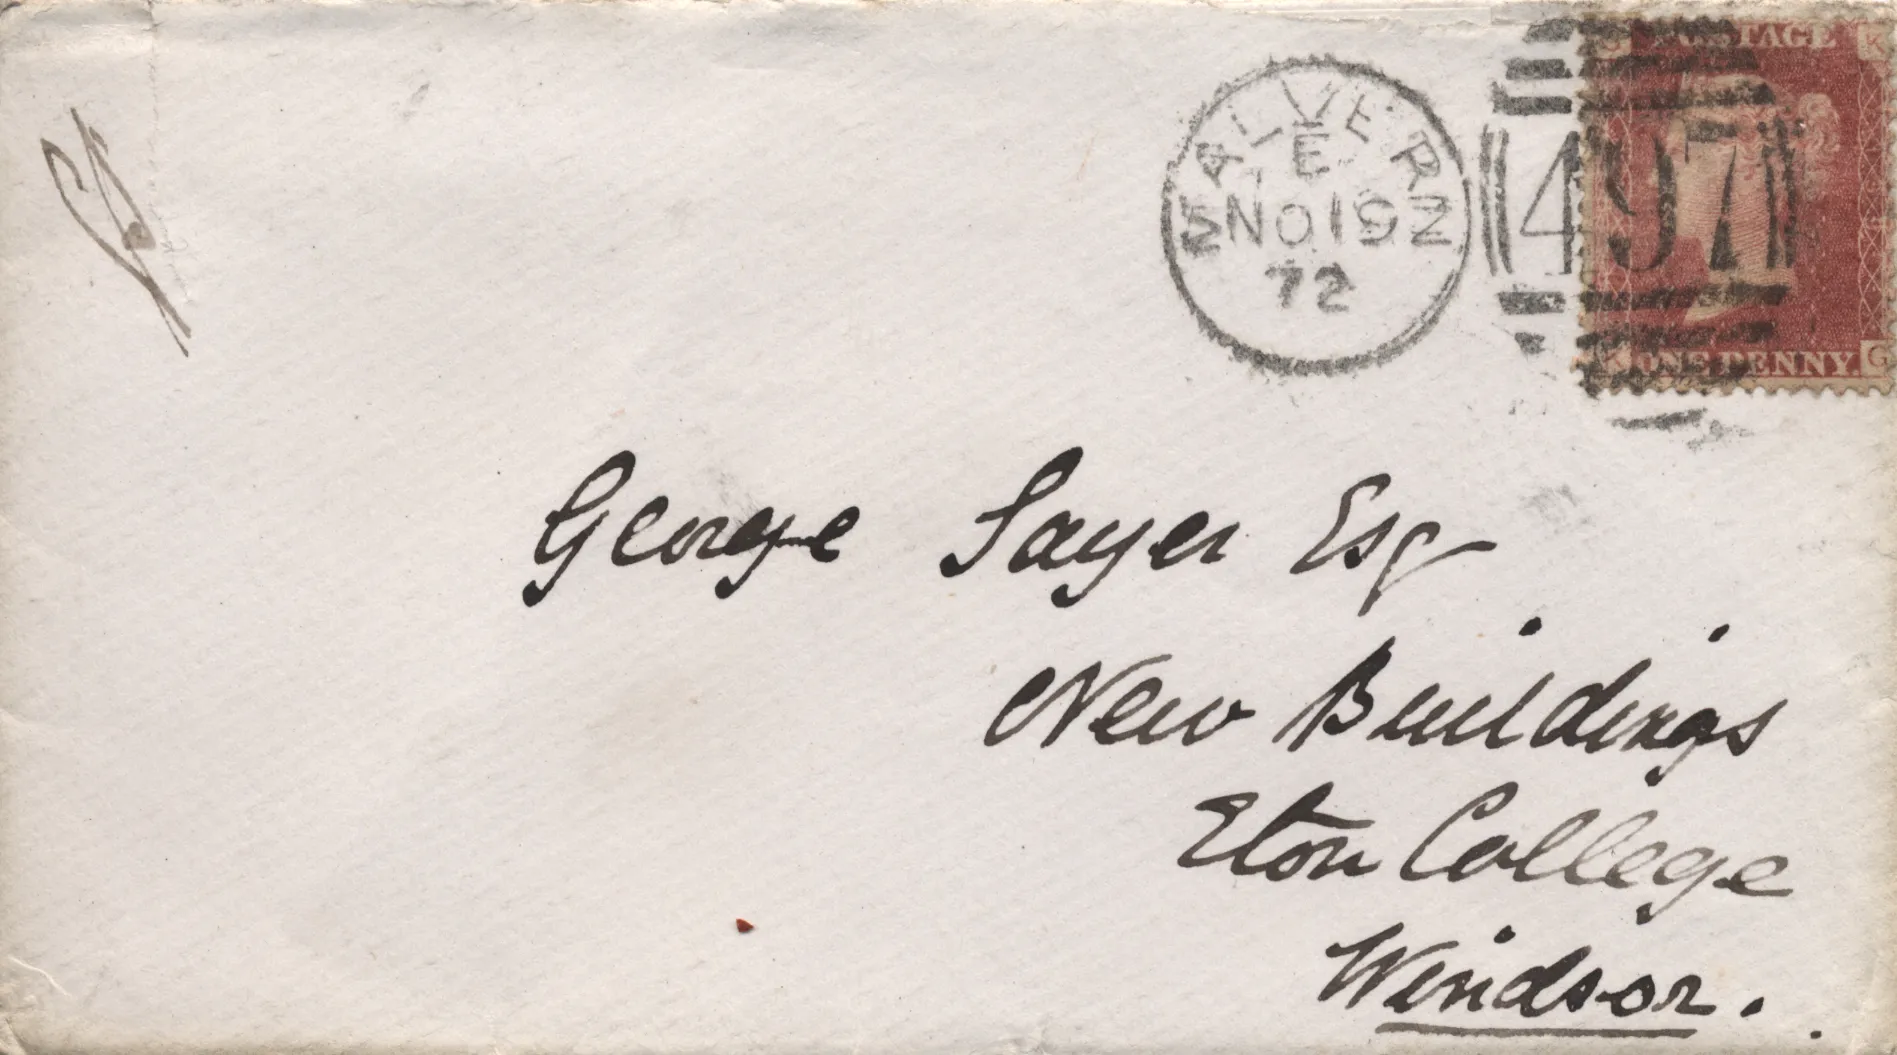 MALVERN
E
NO 19
72
497
G POSTAGE K
K ONE PENNY. G
George Sayer Esq
New Buildings
Eton College
Windsor.